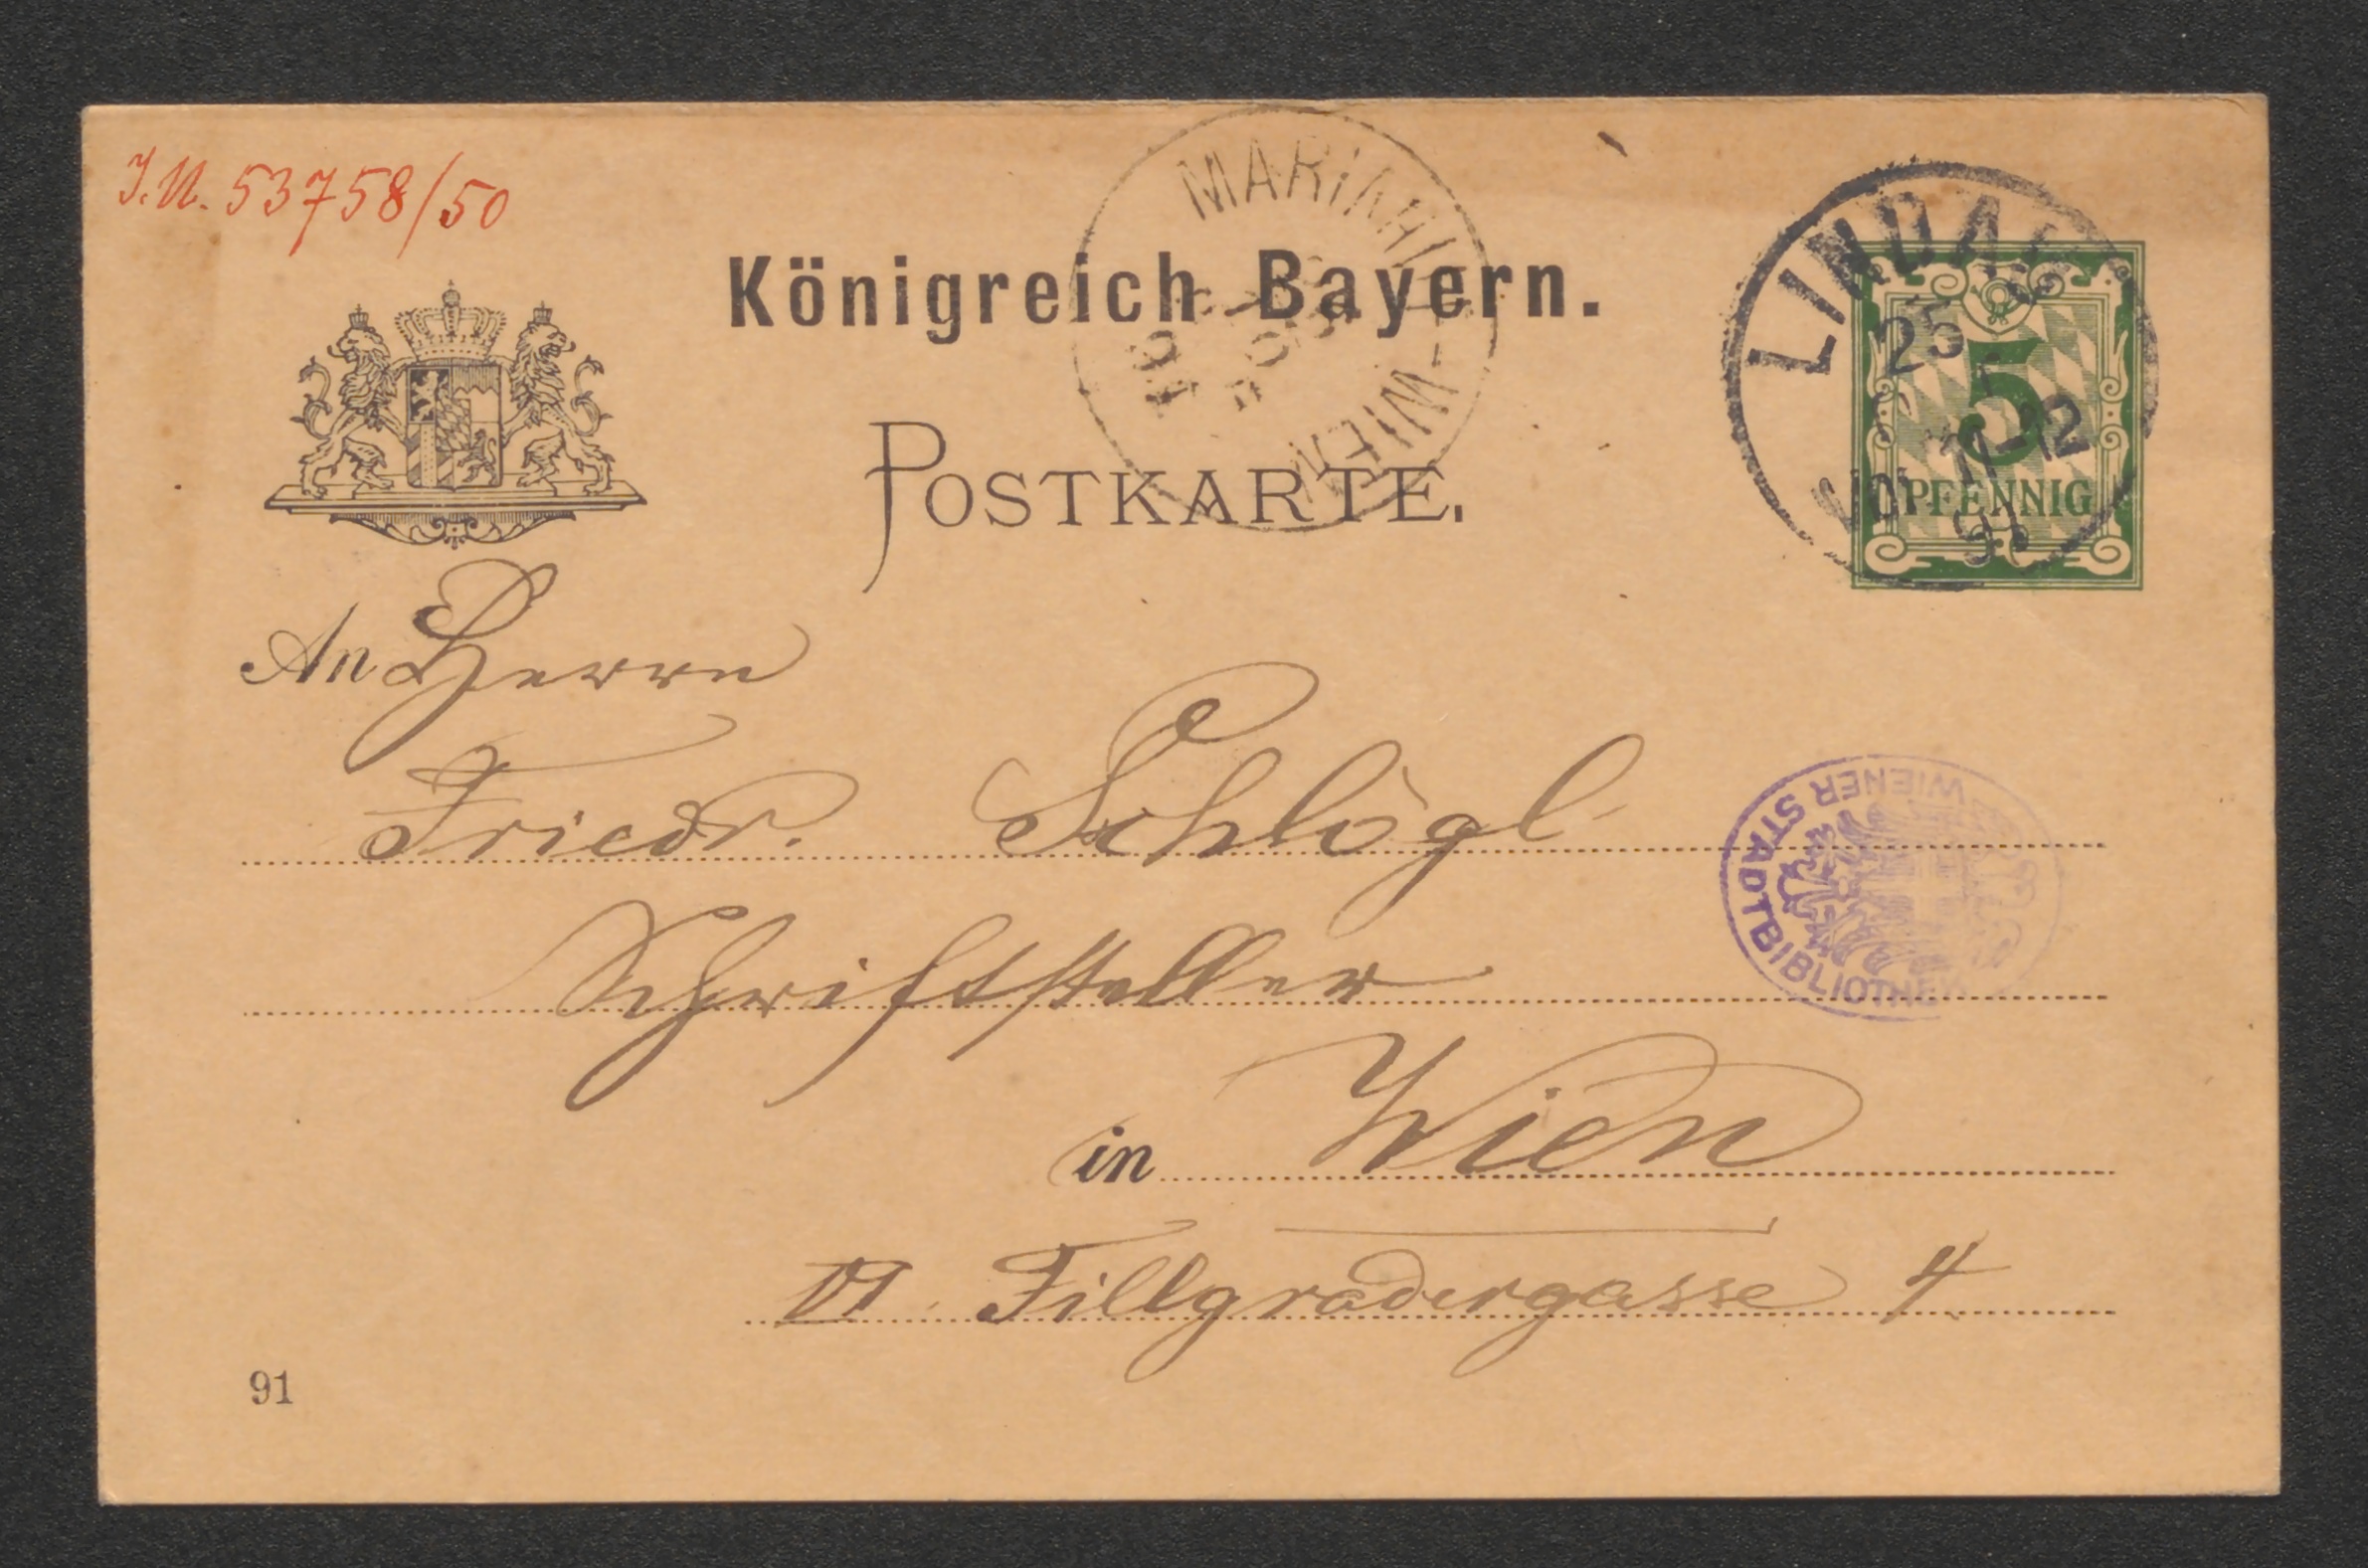 J.N. 53758/50
MARIAHILF
WIEN
Königreich Bayern.
LINDAU
25
11-12
5
PFENNIG
POSTKARTE.
An Herrn
Friedr. Schlögl
Schriftsteller
in Wien
VI. Fillgradergasse 4
WIENER STADTBIBLIOTHEK
91